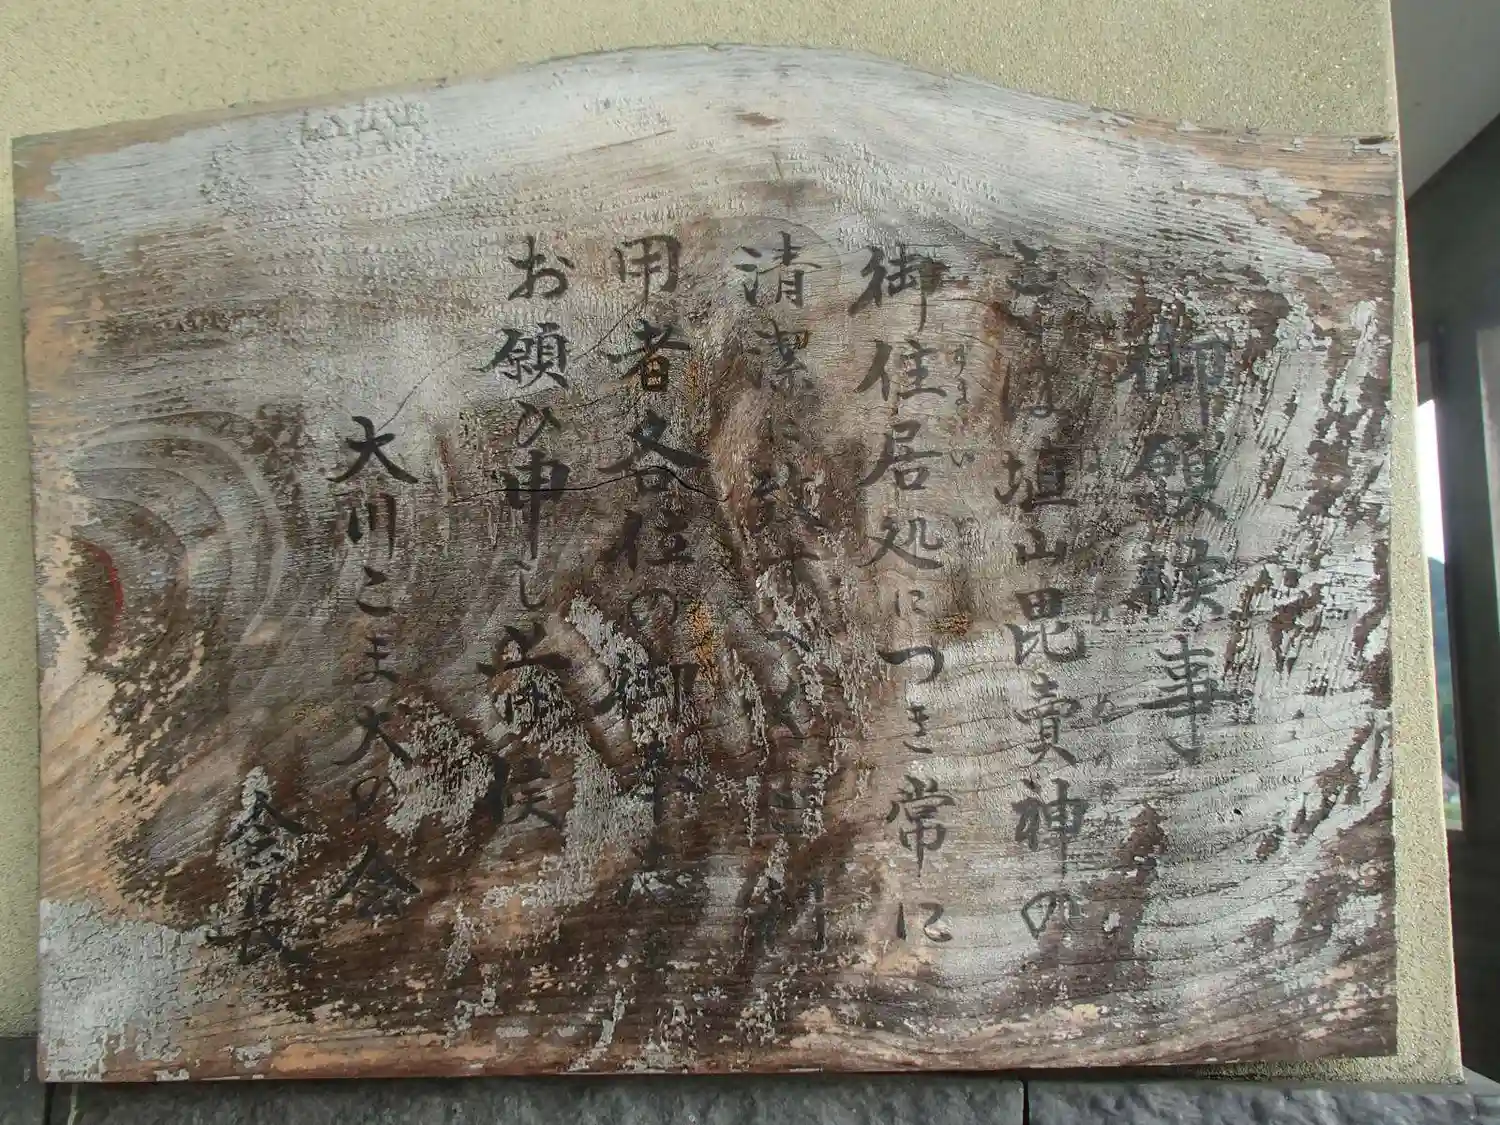 御願候事
ここは埴山毘賣神の
御住居処につき常に
すまい
清潔に致す
用者各位の御
お願ひ申し
候
大川こま犬の会
会長